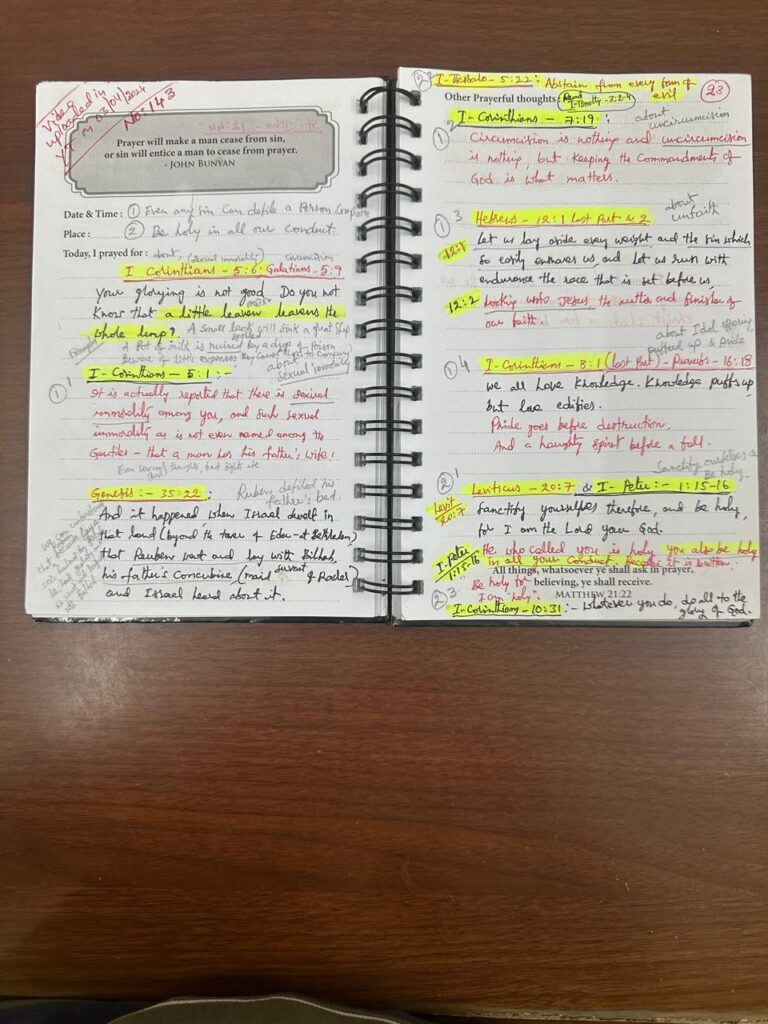 Video
uploaded in
Y.T M 03/04/2024
No: 143
Prayer will make a man cease from sin,
or sin will entice a man to cease from prayer.
- JOHN BUNYAN
Date & Time : ① Even any sin can defile a Person
Place : ② Be holy in all our conduct.
Today, I prayed for : about, (sexual immorality) circumcision
I Corinthians - 5:6; Galatians - 5:9
Your glorying is not good. Do you not
Know that a little leaven leavens the
whole lump? A small leak will sink a great ship
Example
A Pot of milk is ruined by a drop of Poison
spoiled
Beware of little expenses
about
sexual immorality
I - Corinthians - 5:1 :-
① 1 It is actually reported that there is sexual
immorality among you, and such sexual
immorality as is not even named among the
Gentiles - that a man has his father's wife!
Even sexual thoughts, bad sight etc
Genesis :- 35:22 : Reuben defiled his
father's bed.
And it happened when Israel dwelt in
that land (beyond the tower of Eder - at Bethlehem)
that Reuben went and lay with Bilhah,
his father's concubine (maid servant of Rachel)
and Israel heard about it.
② 2 I - Thessalo - 5:22 : Abstain from every form of
evil
23
Other Prayerful thoughts : Read I - Timothy - 3:2-4
I - Corinthians - 7:19 : about
uncircumcision
① 2 Circumcision is nothing and uncircumcision
is nothing, but keeping the Commandments of
God is what matters.
① 3 Hebrews - 12:1 last Part & 2 about
unfaith
12:1 Let us lay aside every weight, and the sin which
so easily ensnares us, and let us run with
endurance the race that is set before us,
12:2 looking unto Jesus the author and finisher of
our faith.
about Idol offering,
puffed up & Pride
① 4 I - Corinthians - 8:1 (last Part) - Proverbs - 16:18
we all have Knowledge. Knowledge puffs up,
but love edifies.
Pride goes before destruction,
And a haughty spirit before a fall.
Sanctify ourselves &
Be holy.
② 1 Leviticus - 20:7 & I - Peter :- 1:15-16
Levit 20:7
Sanctify yourselves therefore, and be holy,
for I am the Lord your God.
I. Peter 1:15-16
He who called you is holy, you also be holy
in all your conduct, because it is written,
All things, whatsoever ye shall ask in prayer,
"Be holy for believing, ye shall receive.
I am holy". MATTHEW 21:22
② 3 I - Corinthians - 10:31 :- Whatever you do, do all to the
glory of God.